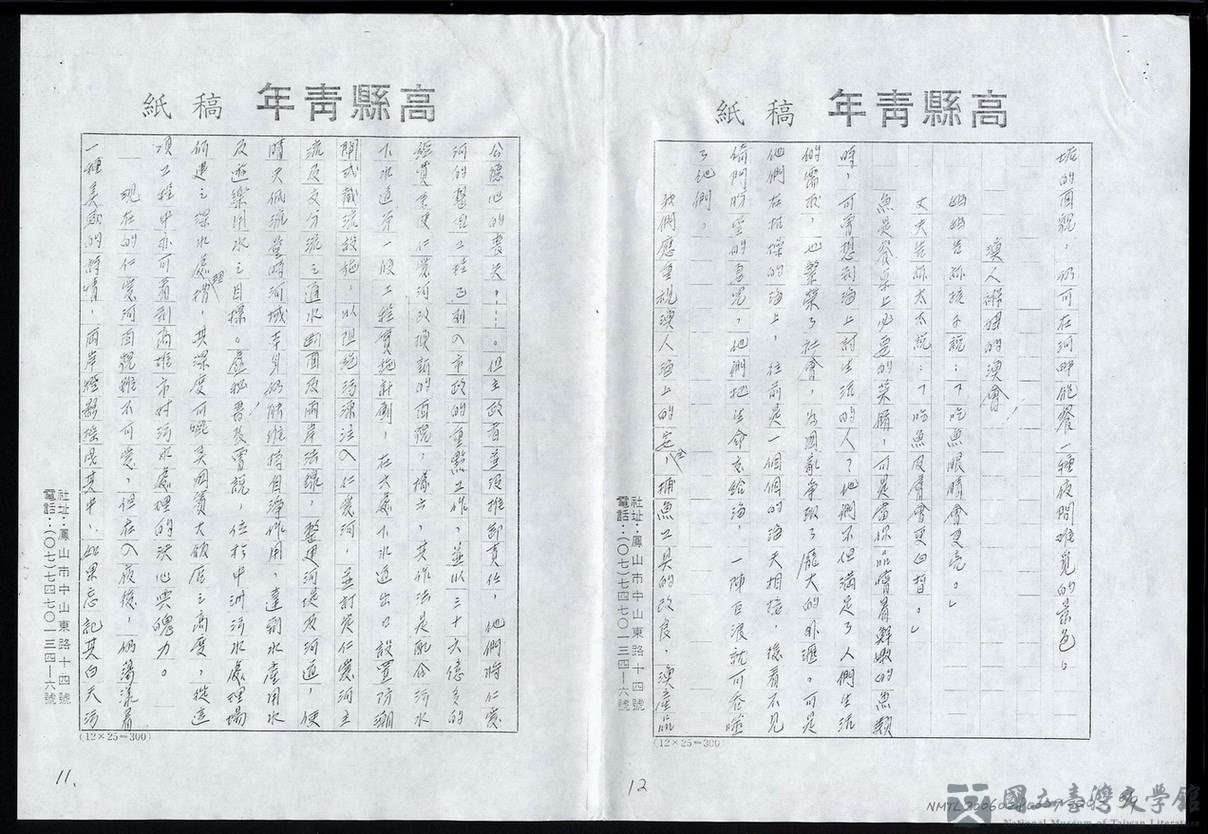 高縣青年 稿紙
公德心的喪失，…。但主政者並沒推卸責任，他們將仁愛
河的整治工程已列入市政的重點工作，並以三十六億多的
經費來使仁愛河改換新的面貌，據云，其作法是配合污水
下水道第一段工程實施計劃，在六處下水道出口設置防潮
閘或截流設施，以阻絕污染注入仁愛河，並打定仁愛河主
流及支分流之通水斷面及兩岸沿線，整建河堤及河道，使
晴天低流量時河域本身仍能維持自淨作用，達到水產用水
及遊樂用水之目標。盧祝壽長曾說，位於中洲污水處理場
所建之深水處槽，其深度可媲美國賓大飯店之高度，從這
項工程中亦可看到高雄市對污水處理的決心與魄力。
現在的仁愛河面貌雖不可愛，但在入夜後，仍蕩漾著
一種美感的詩情，兩岸燈影搖曳其中，如果忘記其白天污
社址：鳳山市中山東路十四號
電話：(〇七)七四七〇一三四—六號
(12×25=300)
11.
高縣青年 稿紙
垢的面貌，仍可在河畔飽餐一種夜間難覓的景色。
漁人懷抱的漁會
媽媽告訴孩子說：「吃魚眼睛會更亮。」
丈夫告訴太太說：「吃魚皮膚會更白皙。」
魚是餐桌上必要的菜餚，可是當你品嚐著鮮嫩的魚類
時，可曾想到海上討生活的人？他們不但滿足了人們生活
的需求，也繁榮了社會，為國家爭取了龐大的外匯。可是
他們在枯燥的海上，往前是一個個的海天相接，後看不見
倚門盼望的妻兒，他們把生命交給海，一陣巨浪就可吞噬
了他們，
我們應重視漁人海上的安全，捕魚工具的改良，漁產品
社址：鳳山市中山東路十四號
電話：(〇七)七四七〇一三四—六號
(12×25=300)
12
國立臺灣文學館
National Museum of Taiwan Literature